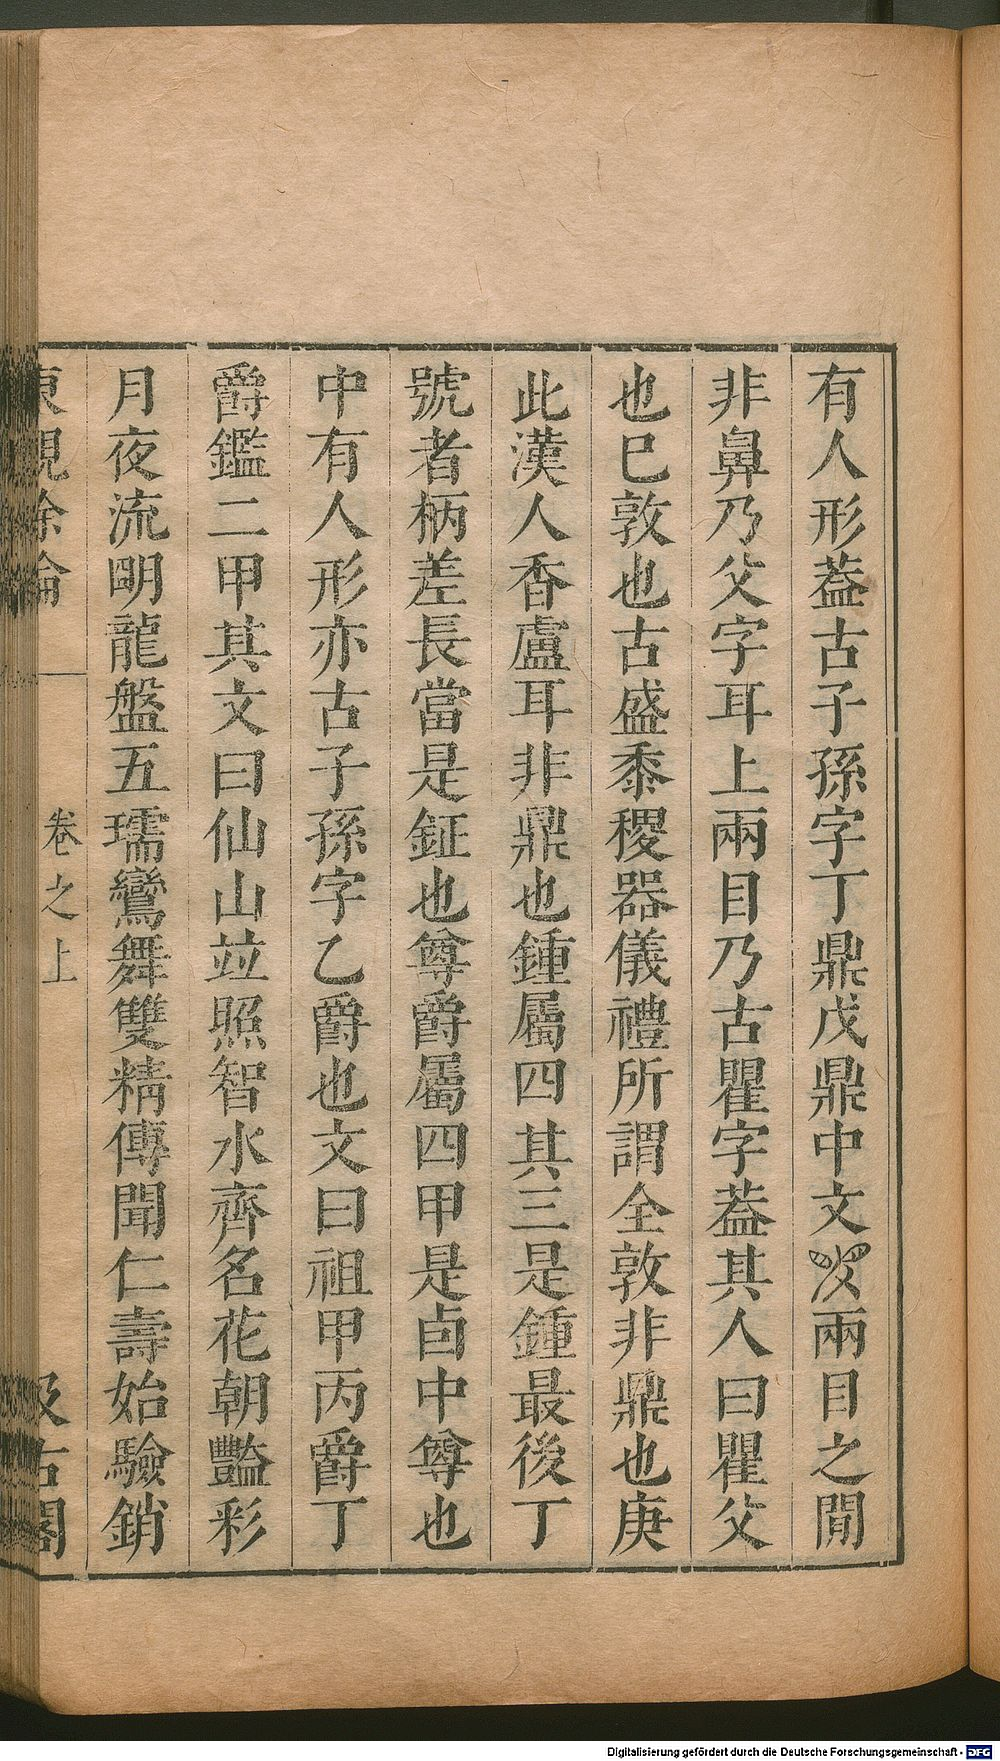 有人形葢古子孫字丁鼎戊鼎中文兩目之間
非鼻乃父字耳上兩目乃古瞿字葢其人曰瞿父
也巳敦也古盛黍稷器儀禮所謂全敦非鼎也庚
此漢人香盧耳非鼎也鍾屬四其三是鍾最後丁
號者柄差長當是鉦也尊爵屬四甲是卣中尊也
中有人形亦古子孫字乙爵也文曰祖甲丙爵丁
爵鑑二甲其文曰仙山竝照智水齊名花朝豔彩
月夜流明龍盤五瑞鸞舞雙精傳聞仁壽始驗銷
東觀餘論 卷之上 汲古閣
Digitalisierung gefördert durch die Deutsche Forschungsgemeinschaft - DFG